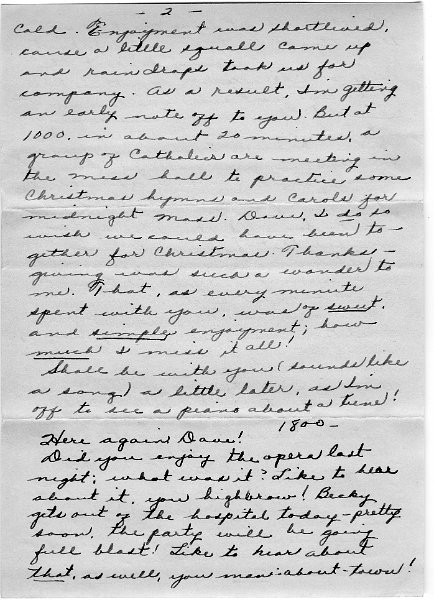 - 2 -
cold. Enjoyment was shortlived,
cause a little squall came up
and rain drops took us for
company. As a result, I'm getting
an early note off to you. But at
1000, in about 20 minutes, a
group of Catholics are meeting in
the mess hall to practice some
Christmas hymns and carols for
midnight mass. Dave, I do so
wish we could have been to-
gether for Christmas. Thanks-
giving was such a wonder to
me. That, as every minute
spent with you, was of sweet,
and simple enjoyment; how
much I miss it all!
Shall be with you (sounds like
a song) a little later, as I'm
off to see a piano about a tune!
1800-
Here again Dave!
Did you enjoy the opera last
night; what was it? Like to hear
about it, you highbrow! Becky
gets out of the hospital today - pretty
soon, the party will be going
full blast! Like to hear about
that, as well, you man-about-town!